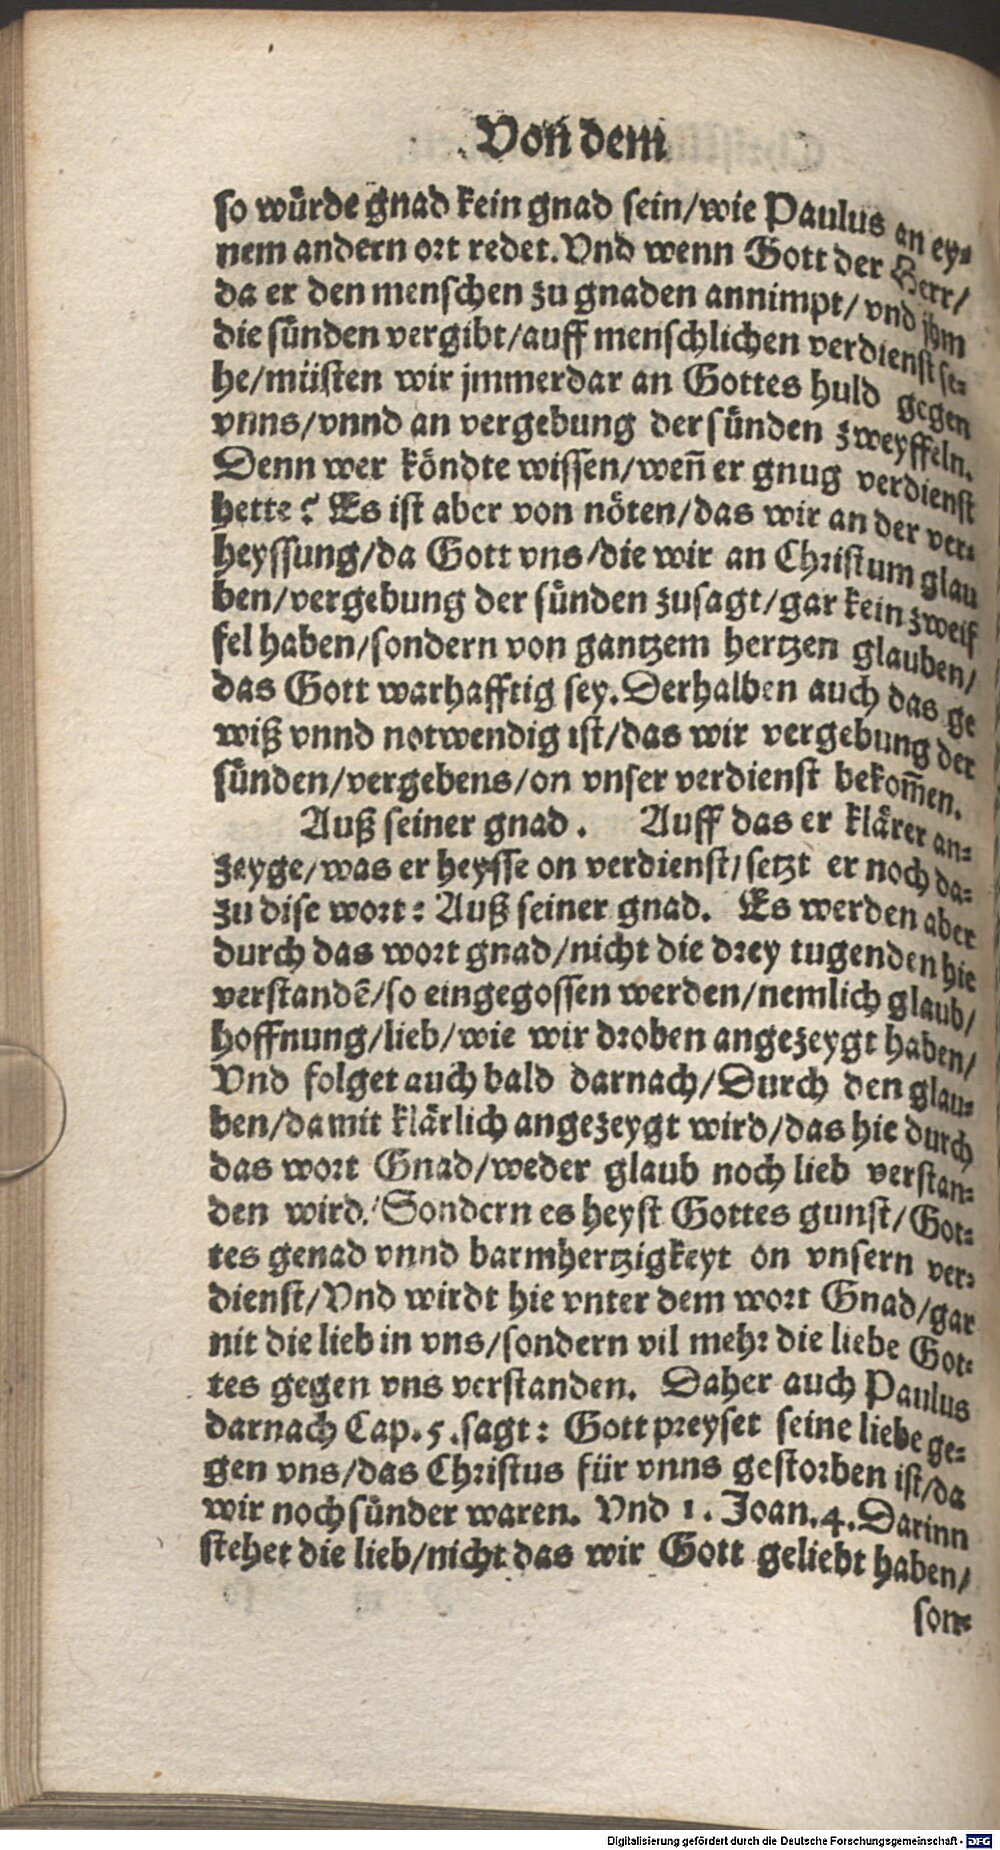 Von dem
so würde gnad kein gnad sein/wie Paulus an ey⸗
nem andern ort redet. Vnd wenn Gott der Herr/
da er den menschen zu gnaden annimpt/ vnd jhm
die sünden vergibt/auff menschlichen verdienst se⸗
he/müsten wir jmmerdar an Gottes huld gegen
vnns/vnnd an vergebung der sünden zweyffeln.
Denn wer köndte wissen/weñ er gnug verdienst
hette? Es ist aber von nöten/das wir an der ver⸗
heyssung/da Gott vns/die wir an Christum glau
ben/vergebung der sünden zusagt/gar kein zweif
fel haben/sondern von gantzem hertzen glauben/
das Gott warhafftig sey. Derhalben auch das ge
wiß vnnd notwendig ist/das wir vergebung der
sünden/vergebens/on vnser verdienst bekom̃en.
Auß seiner gnad. Auff das er klärer an⸗
zeyge/was er heysse on verdienst/setzt er noch da⸗
zu dise wort: Auß seiner gnad. Es werden aber
durch das wort gnad/nicht die drey tugenden hie
verstandẽ/so eingegossen werden/nemlich glaub/
hoffnung/lieb/wie wir droben angezeygt haben/
Vnd folget auch bald darnach/Durch den glau⸗
ben/damit klärlich angezeygt wird/das hie durch
das wort Gnad/weder glaub noch lieb verstan⸗
den wird. Sondern es heyst Gottes gunst/Got⸗
tes genad vnnd barmhertzigkeyt on vnsern ver⸗
dienst/Vnd wirdt hie vnter dem wort Gnad/gar
nit die lieb in vns/sondern vil mehr die liebe Got⸗
tes gegen vns verstanden. Daher auch Paulus
darnach Cap.5.sagt: Gott preyset seine liebe ge⸗
gen vns/das Christus für vnns gestorben ist/da
wir noch sünder waren. Vnd 1. Joan.4. Darinn
stehet die lieb/nicht das wir Gott geliebt haben/
son⸗
Digitalisierung gefördert durch die Deutsche Forschungsgemeinschaft - DFG